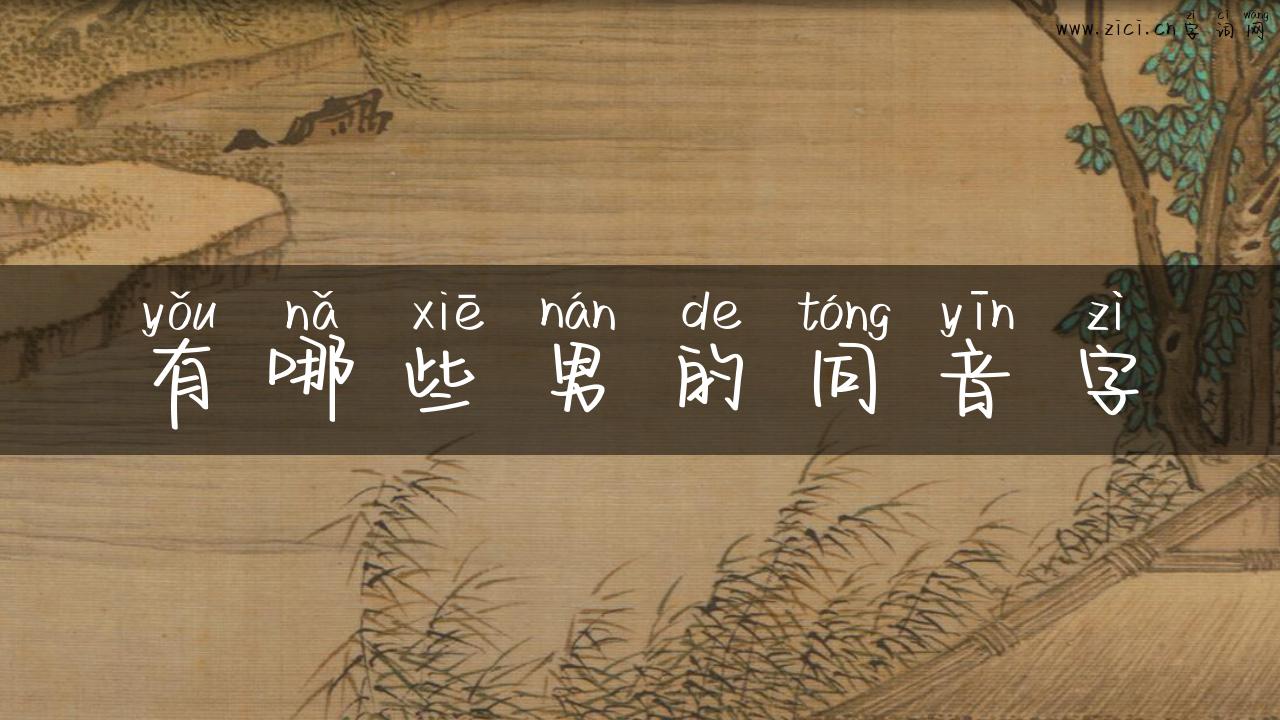 zì cí wǎng
www.zici.cn字词网
yǒu nǎ xiē nán de tóng yīn zì
有哪些男的同音字